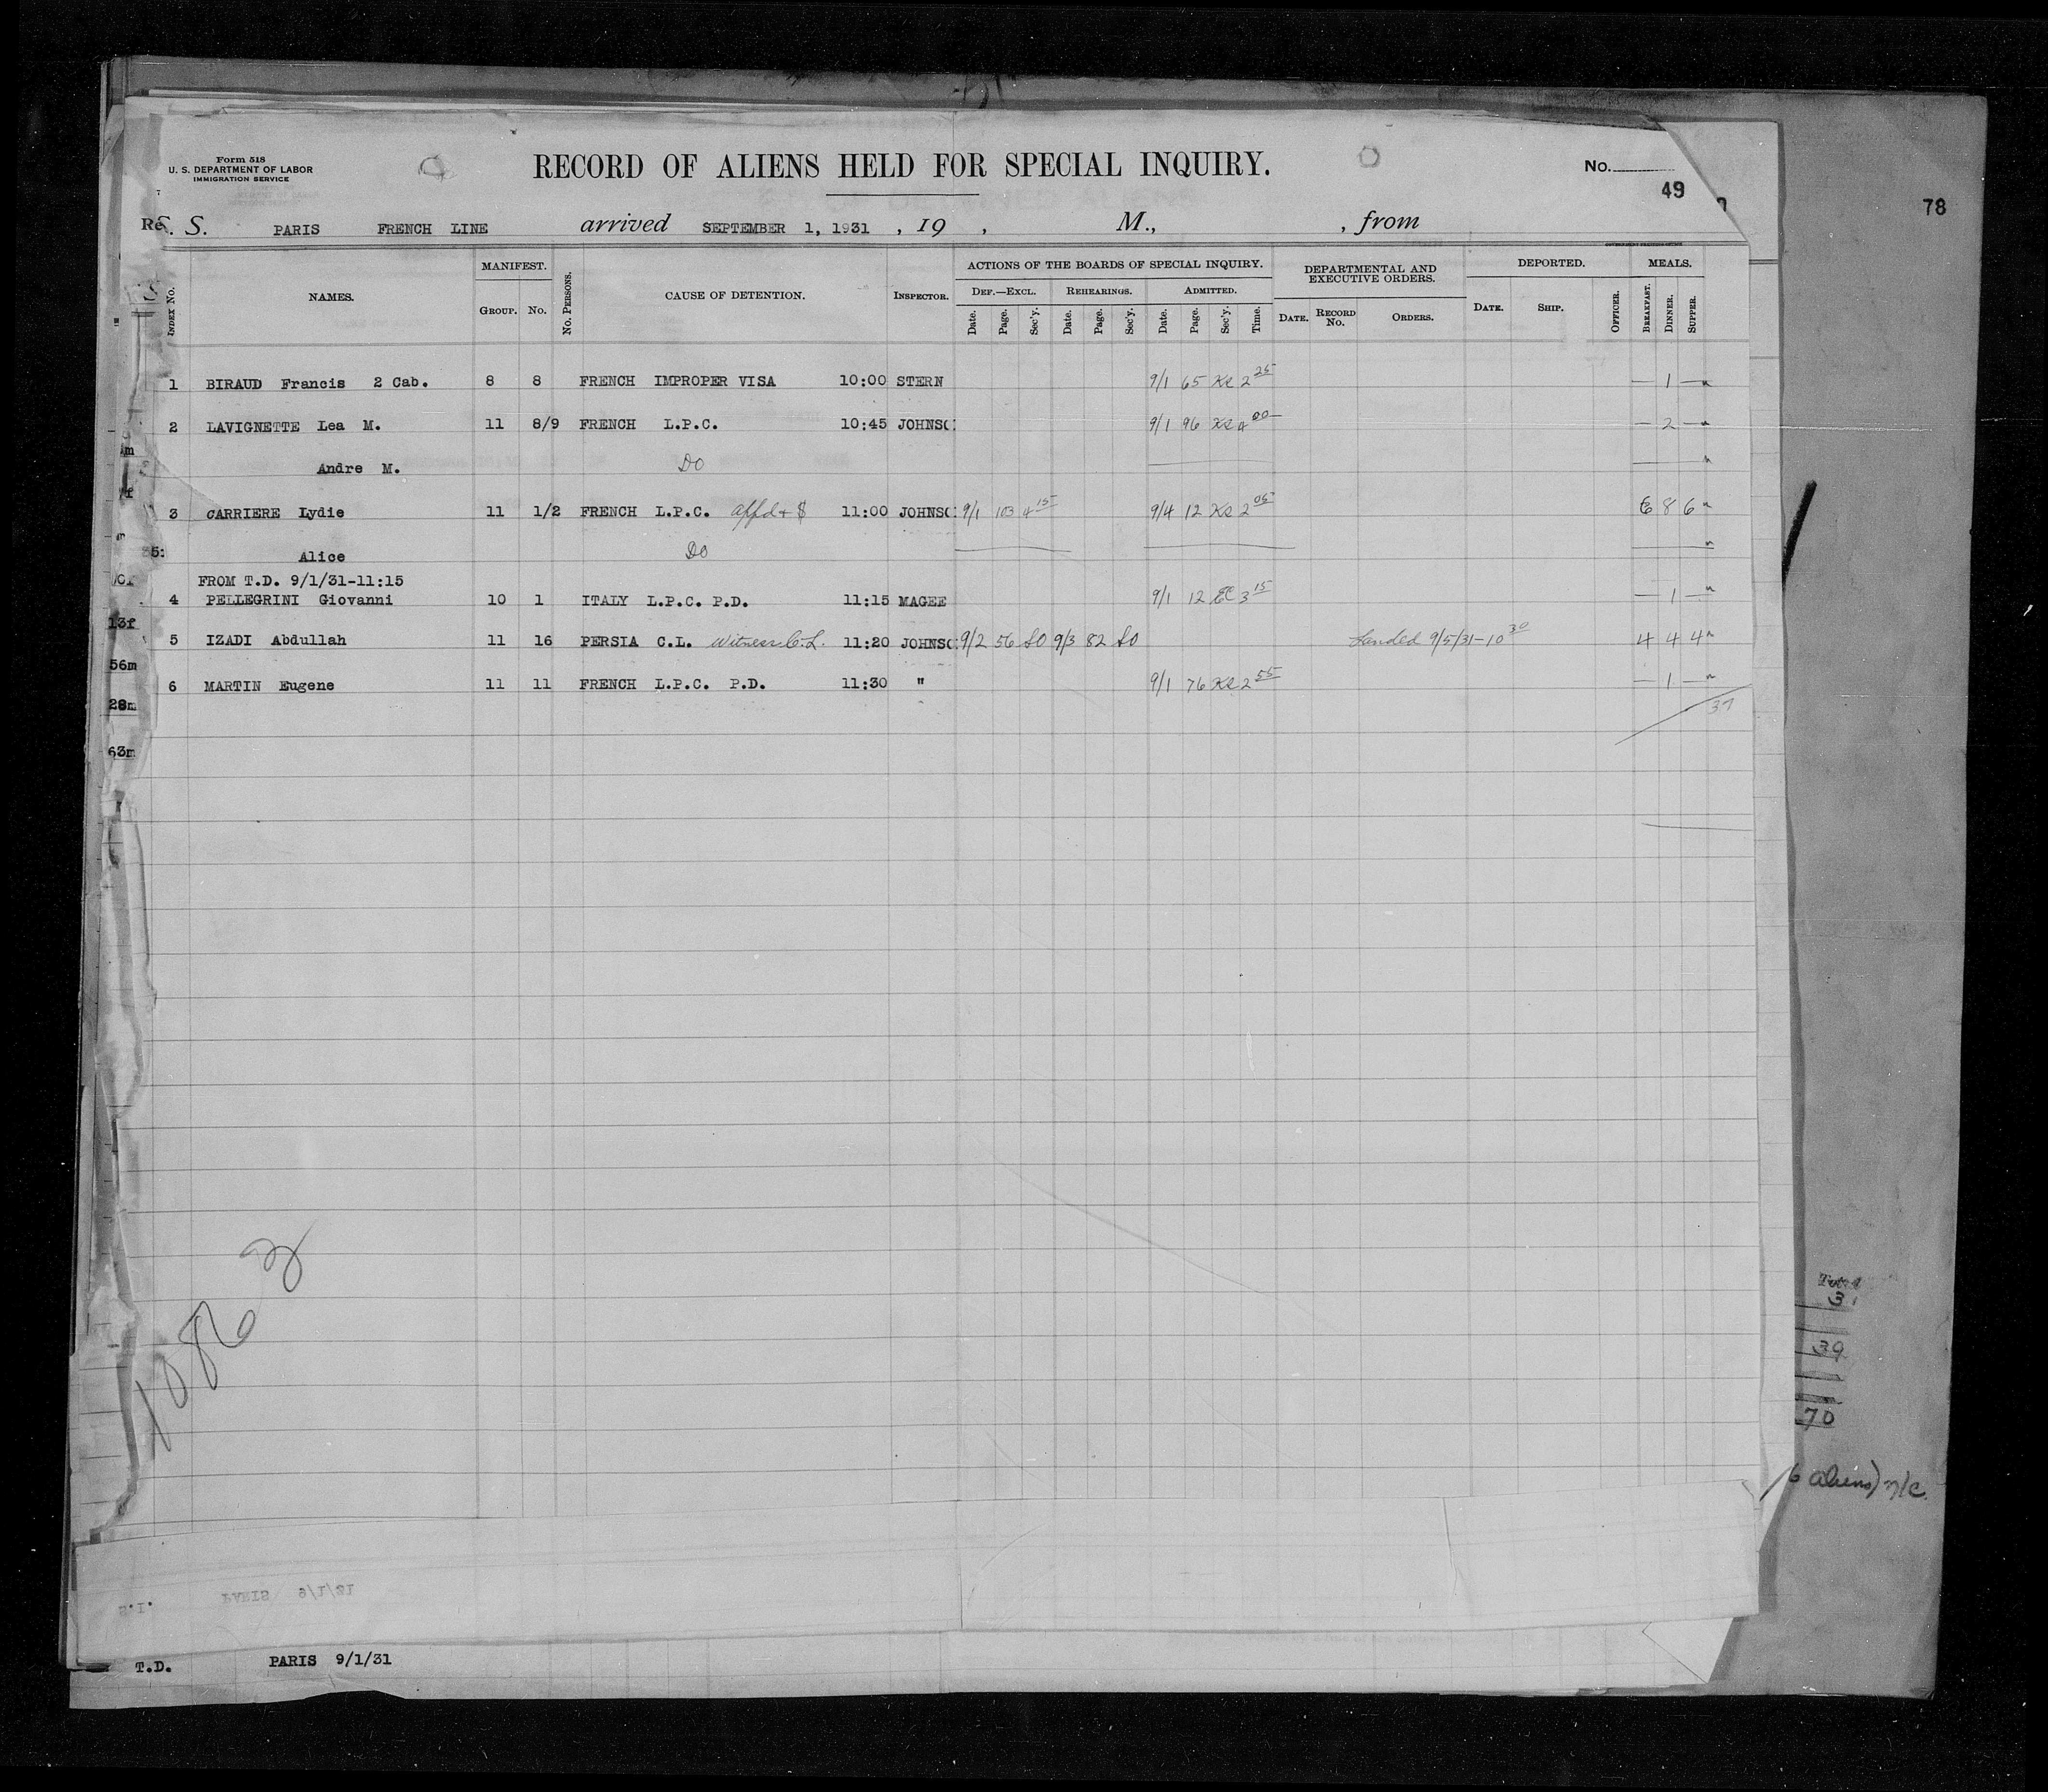 Form 518
U. S. DEPARTMENT OF LABOR
IMMIGRATION SERVICE
RECORD OF ALIENS HELD FOR SPECIAL INQUIRY.
No.
49
78
S. S. PARIS FRENCH LINE arrived SEPTEMBER 1, 1931 , 19 , M., , from
INDEX No. NAMES. MANIFEST. Group. No. No. Persons. CAUSE OF DETENTION. Inspector. ACTIONS OF THE BOARDS OF SPECIAL INQUIRY. DEPARTMENTAL AND EXECUTIVE ORDERS. DEPORTED. MEALS.
Def.—Excl. Rehearings. Admitted.
Date. Page. Sec'y. Date. Page. Sec'y. Date. Page. Sec'y. Time. Date. Record No. Orders. Date. Ship. Officer. Breakfast. Dinner. Supper.
1 BIRAUD Francis 2 Cab. 8 8 FRENCH IMPROPER VISA 10:00 STERN 9/1 65 2 25 — 1 —
2 LAVIGNETTE Lea M. 11 8/9 FRENCH L.P.C. 10:45 JOHNSO 9/1 96 4 00 — 2 —
Andre M. DO
3 CARRIERE Lydie 11 1/2 FRENCH L.P.C. affd + $ 11:00 JOHNSO 9/1 103 4 15 9/4 12 2 05 6 8 6
Alice DO
FROM T.D. 9/1/31-11:15
4 PELLEGRINI Giovanni 10 1 ITALY L.P.C. P.D. 11:15 MAGEE 9/1 12 3 15 — 1 —
5 IZADI Abdullah 11 16 PERSIA C.L. Witness C.L. 11:20 JOHNSO 9/2 56 SO 9/3 82 SO Landed 9/5/31-10 30 4 4 4
6 MARTIN Eugene 11 11 FRENCH L.P.C. P.D. 11:30 " 9/1 76 2 55 — 1 —
37
13f
56m
28m
63m
1086
Total
31
39
70
6 aliens) n/c
PARIS 9/1/31
T.D. PARIS 9/1/31